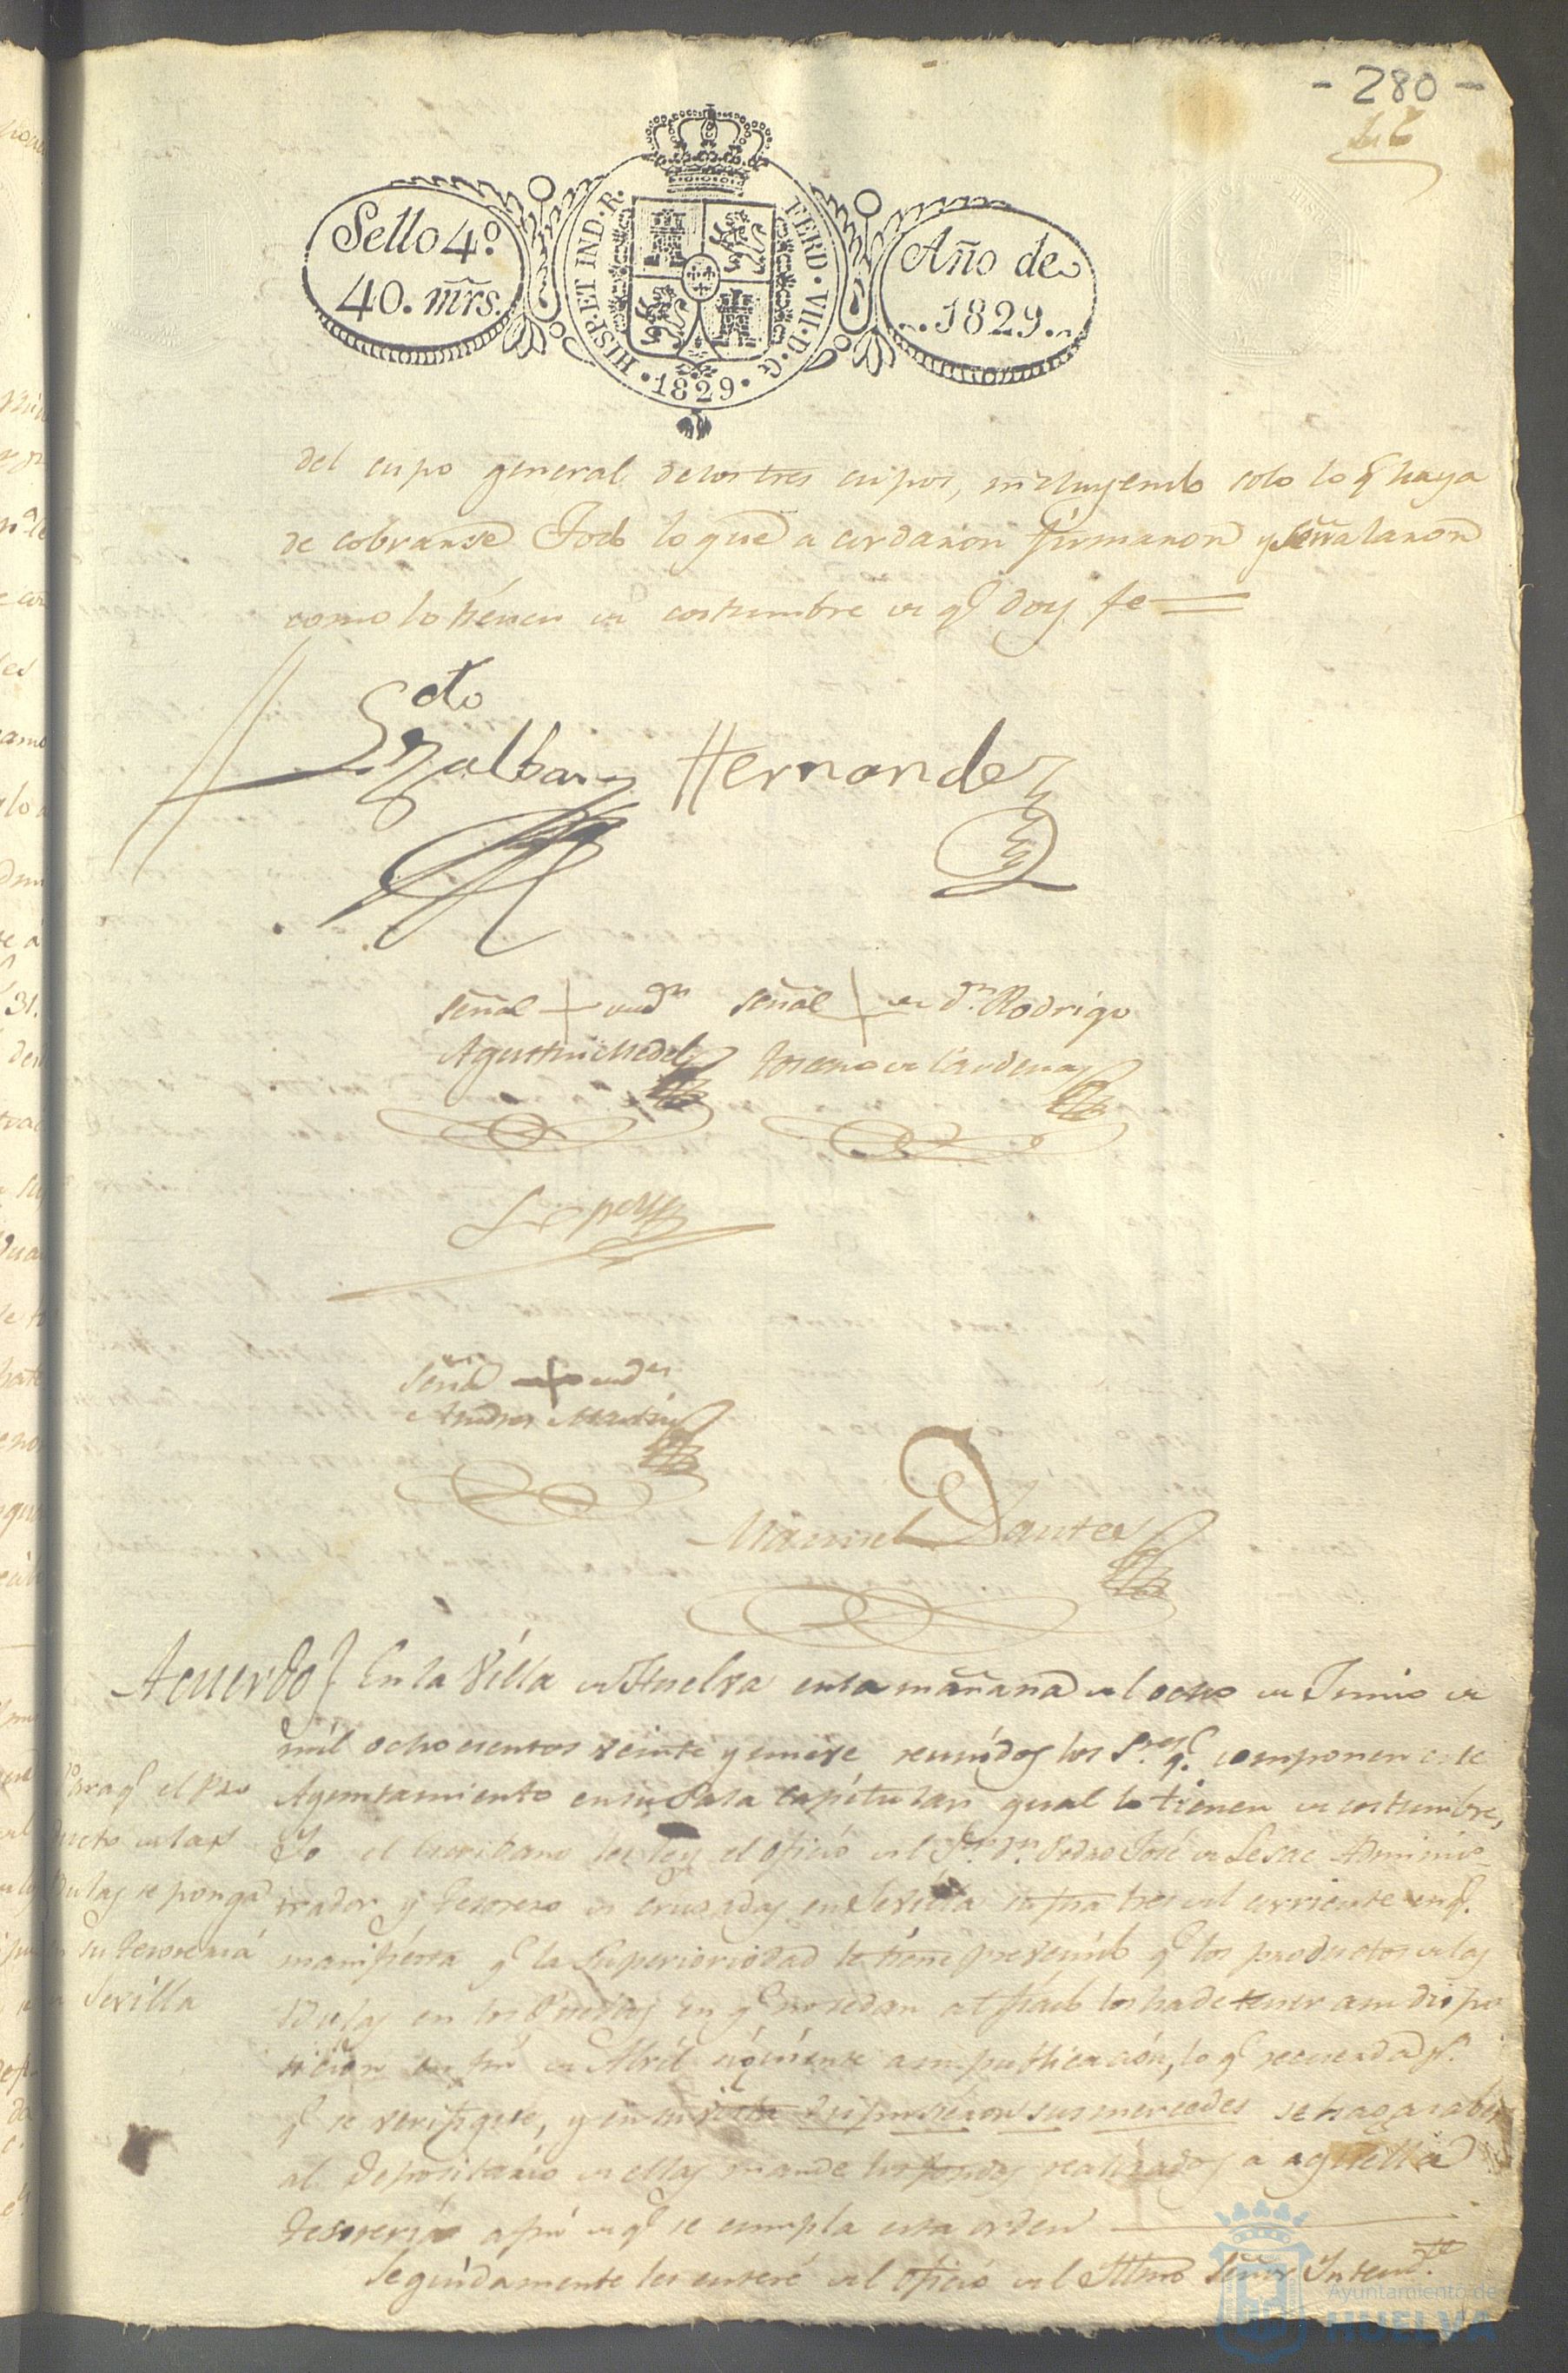 - 280 -
Sello 4º.
40. mrs.
HISP. ET IND. R. FERD. VII. D. G. 1829
Año de
1829.
del cupo general delos tres cupos, incluyendo solo lo q.e haya
de cobrarse Todo lo que acordaron firmaron y señalaron
como lo tienen de costumbre de q.e doy fe
Soto
Galban Hernandez
señal + de Dn señal + de Dn. Rodrigo
Agustin Medel Moreno de Cardenas
Lopez
señal + de Dn
Andres Martin
Manuel Dantes
Acuerdo En la Villa de Huelva en la mañana del ocho de Junio de
mil ochocientos veinte y nueve reunidos los S.res q.e componen este
Ayuntamiento en su Sala Capitular qual lo tienen de costumbre,
Yo el Escribano les leý el oficio del S.r D.n Pedro José de Lesac Adminis-
trador y Tesorero de cruzadas en Sevilla su fha tres del corriente en q.e
manifiesta q.e la Superioridad le tiene prevenido q.e los productos de las
Bulas en los Pueblos en q.e no se dan al fiado los ha de tener a su dispo
sicion en fin de Abril siguiente a su publicación, lo q.e recuerda p.a
q.e se verifique, y en su vista dispusieron sus mercedes se haga saber
al Depositario de ellas mande los fondos realizados a aquella
Tesoreria a fin de q.e se cumpla esta orden
Seguidamente les enteré del oficio del Illmo Señor Intend.te
Para q.e el Pro
ducto de las
Bulas se ponga
en su Tesoreria
de Sevilla
Ayuntamiento de
HUELVA